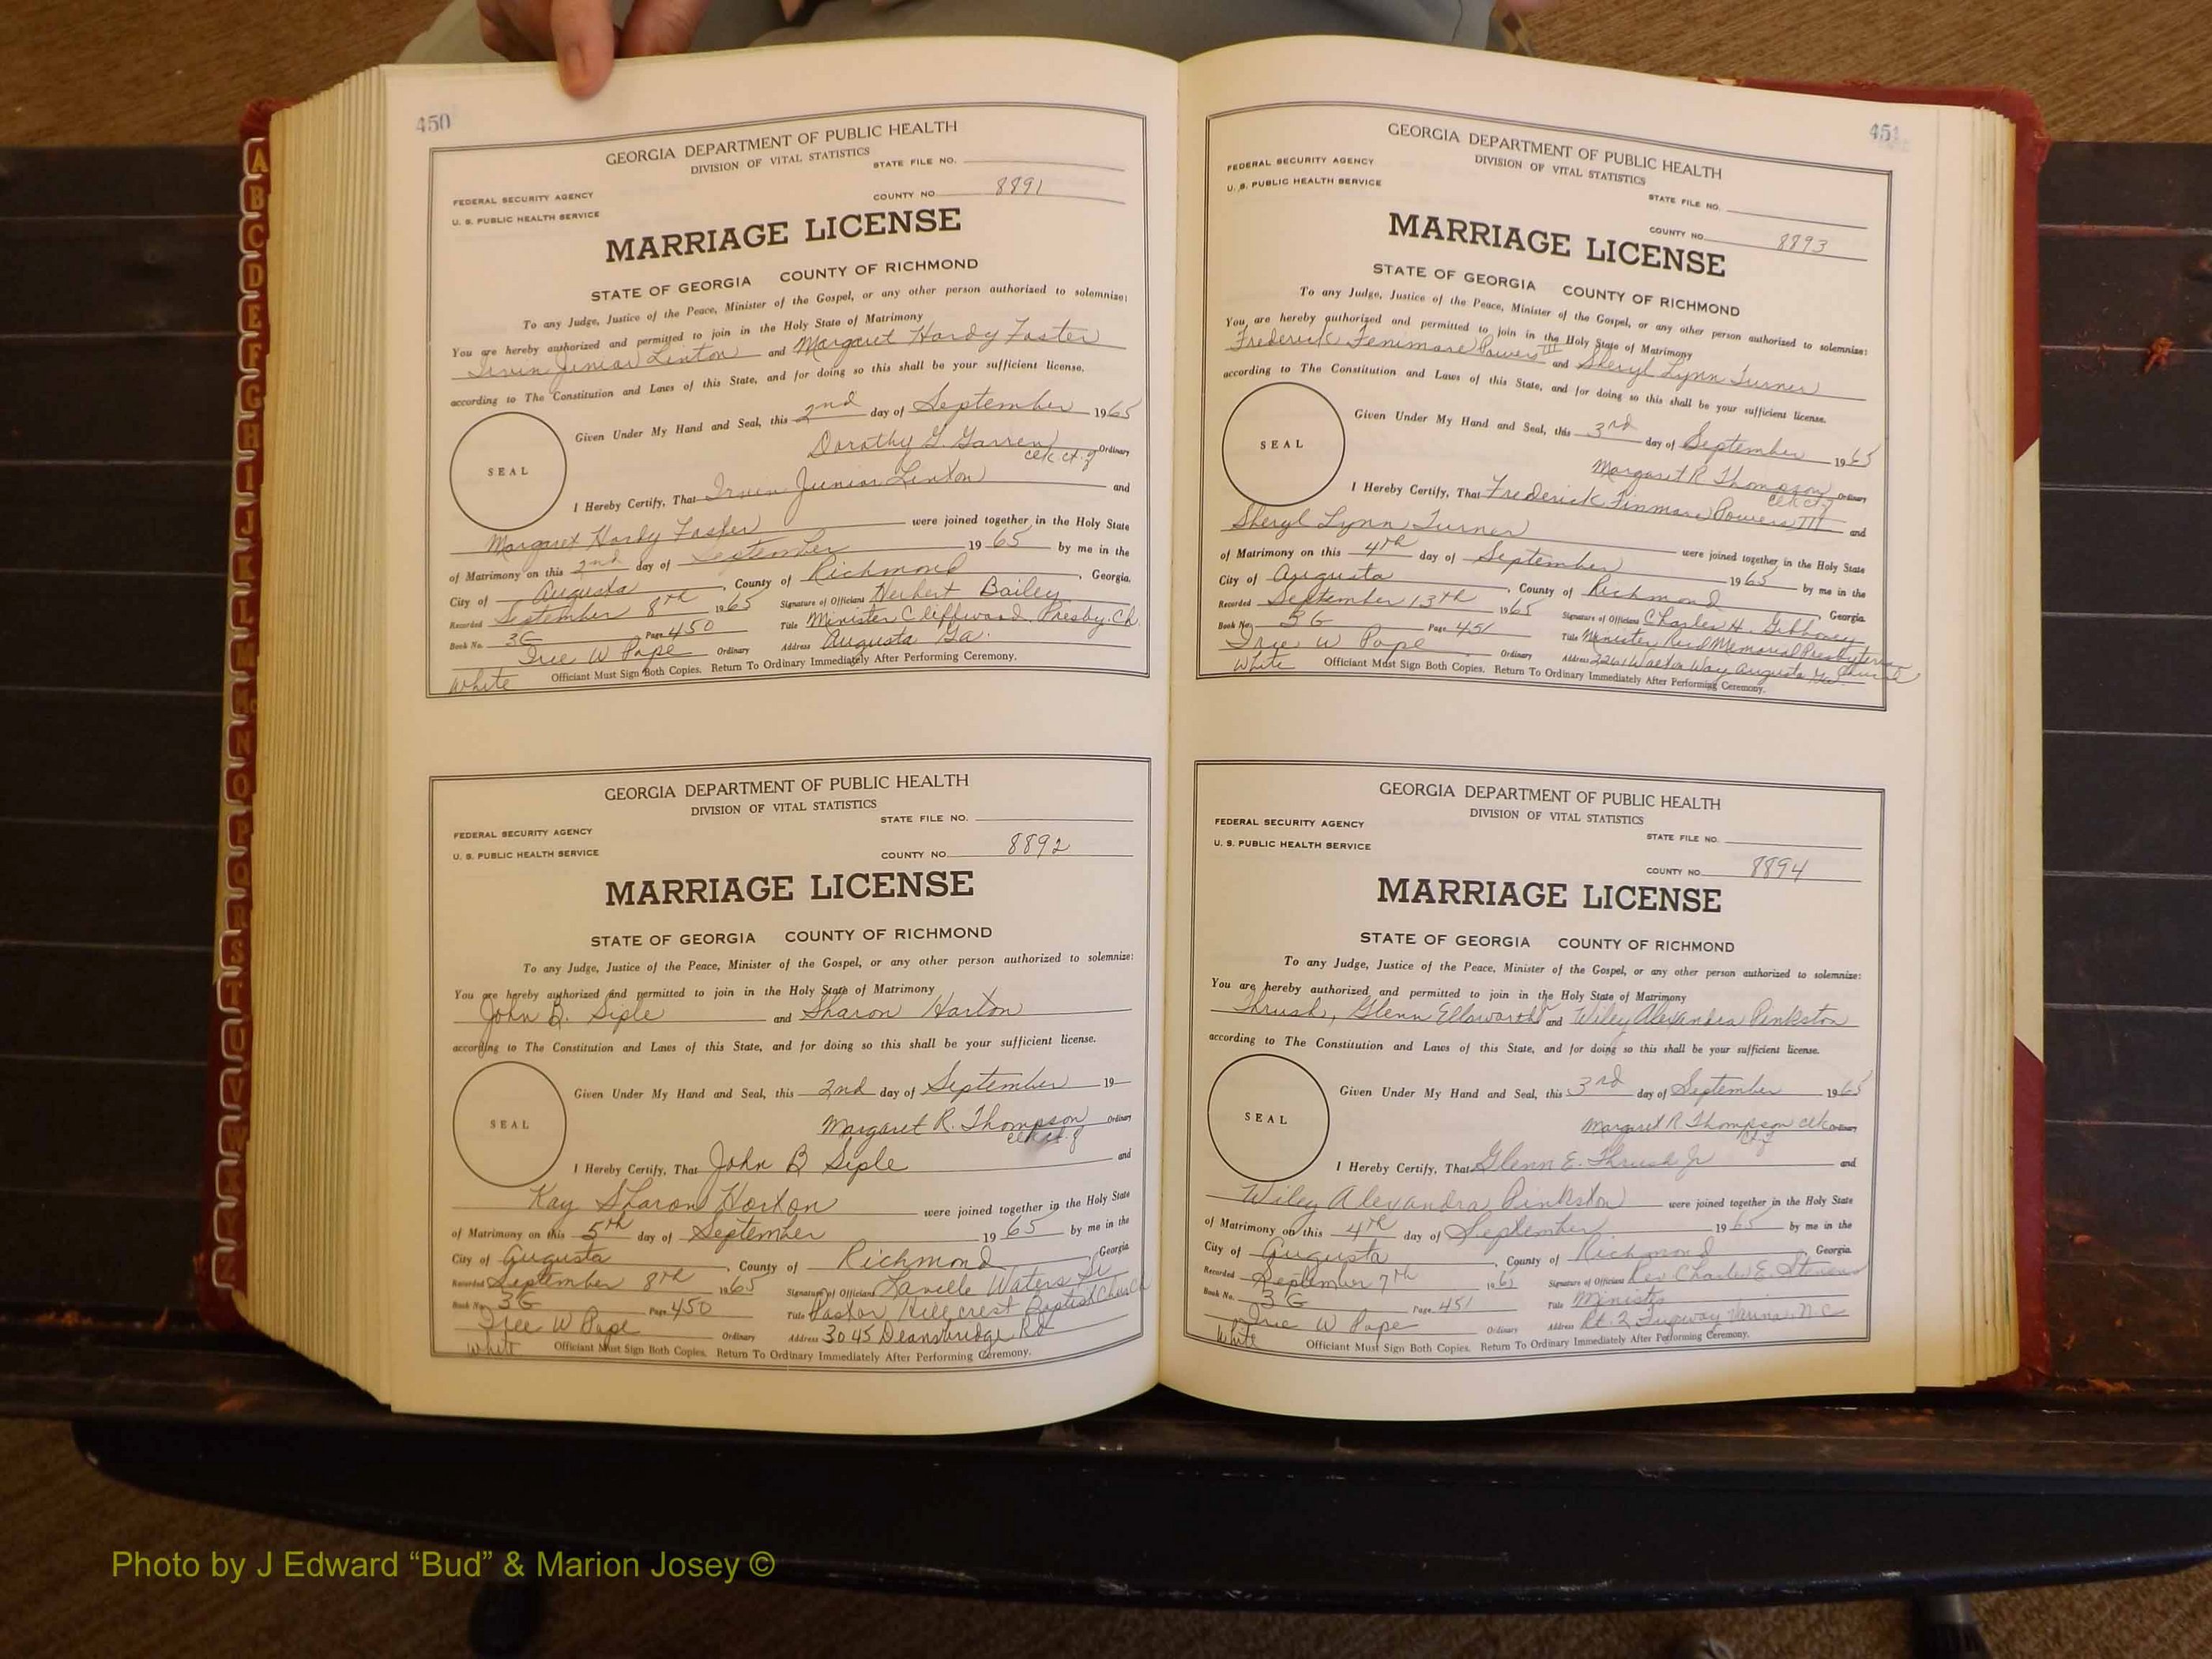 450
GEORGIA DEPARTMENT OF PUBLIC HEALTH
DIVISION OF VITAL STATISTICS
STATE FILE NO.
FEDERAL SECURITY AGENCY
U. S. PUBLIC HEALTH SERVICE
COUNTY NO. 8891
MARRIAGE LICENSE
STATE OF GEORGIA COUNTY OF RICHMOND
To any Judge, Justice of the Peace, Minister of the Gospel, or any other person authorized to solemnize:
You are hereby authorized and permitted to join in the Holy State of Matrimony
Irvin Junior Linton and Margaret Hardy Foster
according to The Constitution and Laws of this State, and for doing so this shall be your sufficient license.
SEAL
Given Under My Hand and Seal, this 2nd day of September 1965
Dorothy G. Garren Ordinary
clk. ct. of
I Hereby Certify, That Irvin Junior Linton and
Margaret Hardy Foster were joined together in the Holy State
of Matrimony on this 2nd day of September 1965 by me in the
City of Augusta, County of Richmond, Georgia.
Recorded September 8th 1965 Signature of Officiant Herbert Bailey
Book No. 3G Page 450 Title Minister Cliffwood Presby. Ch.
W Pope Ordinary Address Augusta Ga.
White Officiant Must Sign Both Copies. Return To Ordinary Immediately After Performing Ceremony.
GEORGIA DEPARTMENT OF PUBLIC HEALTH
DIVISION OF VITAL STATISTICS
STATE FILE NO.
FEDERAL SECURITY AGENCY
U. S. PUBLIC HEALTH SERVICE
COUNTY NO. 8892
MARRIAGE LICENSE
STATE OF GEORGIA COUNTY OF RICHMOND
To any Judge, Justice of the Peace, Minister of the Gospel, or any other person authorized to solemnize:
You are hereby authorized and permitted to join in the Holy State of Matrimony
John B. Siple and Sharon Horton
according to The Constitution and Laws of this State, and for doing so this shall be your sufficient license.
SEAL
Given Under My Hand and Seal, this 2nd day of September 19
Margaret R. Thompson Ordinary
clk ct. of
I Hereby Certify, That John B Siple and
Kay Sharon Horton were joined together in the Holy State
of Matrimony on this 5th day of September 1965 by me in the
City of Augusta, County of Richmond, Georgia
Recorded September 8th 1965 Signature of Officiant Lavelle Waters Sr
Book No. 3G Page 450 Title Pastor Hillcrest Baptist Church
W Pope Ordinary Address 3045 Deansbridge Rd
White Officiant Must Sign Both Copies. Return To Ordinary Immediately After Performing Ceremony.
451
GEORGIA DEPARTMENT OF PUBLIC HEALTH
DIVISION OF VITAL STATISTICS
FEDERAL SECURITY AGENCY
U. S. PUBLIC HEALTH SERVICE
STATE FILE NO.
COUNTY NO. 8893
MARRIAGE LICENSE
STATE OF GEORGIA COUNTY OF RICHMOND
To any Judge, Justice of the Peace, Minister of the Gospel, or any other person authorized to solemnize:
You are hereby authorized and permitted to join in the Holy State of Matrimony
Frederick Fenimore Powers III and Sheryl Lynn Turner
according to The Constitution and Laws of this State, and for doing so this shall be your sufficient license.
SEAL
Given Under My Hand and Seal, this 3rd day of September 1965
Margaret R Thompson Ordinary
clk ct of
I Hereby Certify, That Frederick Finmore Powers III and
Sheryl Lynn Turner were joined together in the Holy State
of Matrimony on this 4th day of September 1965 by me in the
City of Augusta, County of Richmond, Georgia
Recorded September 13th 1965 Signature of Officiant Charles H. Gibboney
Book No. 3G Page 451 Title Minister Reid Memorial Presbyterian Church
W Pope Ordinary Address 2261 Walton Way Augusta Ga.
White Officiant Must Sign Both Copies. Return To Ordinary Immediately After Performing Ceremony.
GEORGIA DEPARTMENT OF PUBLIC HEALTH
DIVISION OF VITAL STATISTICS
FEDERAL SECURITY AGENCY
STATE FILE NO.
U. S. PUBLIC HEALTH SERVICE
COUNTY NO. 8894
MARRIAGE LICENSE
STATE OF GEORGIA COUNTY OF RICHMOND
To any Judge, Justice of the Peace, Minister of the Gospel, or any other person authorized to solemnize:
You are hereby authorized and permitted to join in the Holy State of Matrimony
Thrush, Glenn Ellsworth Jr and Wiley Alexandra Pinkston
according to The Constitution and Laws of this State, and for doing so this shall be your sufficient license.
SEAL
Given Under My Hand and Seal, this 3rd day of September 1965
Margaret R Thompson clk Ordinary
ct of
I Hereby Certify, That Glenn E. Thrush Jr and
Wiley Alexandra Pinkston were joined together in the Holy State
of Matrimony on this 4th day of September 1965 by me in the
City of Augusta, County of Richmond, Georgia
Recorded September 7th 1965 Signature of Officiant Rev Charles E. Stevens
Book No. 3G Page 451 Title Minister
W Pope Ordinary Address Rt. 2 Fuquay Varina N.C
White Officiant Must Sign Both Copies. Return To Ordinary Immediately After Performing Ceremony.
A
B
C
D
E
F
G
H
I
J
K
L
M
Mc
N
O
P
Q
R
S
T
U
V
W
Photo by J Edward “Bud” & Marion Josey ©